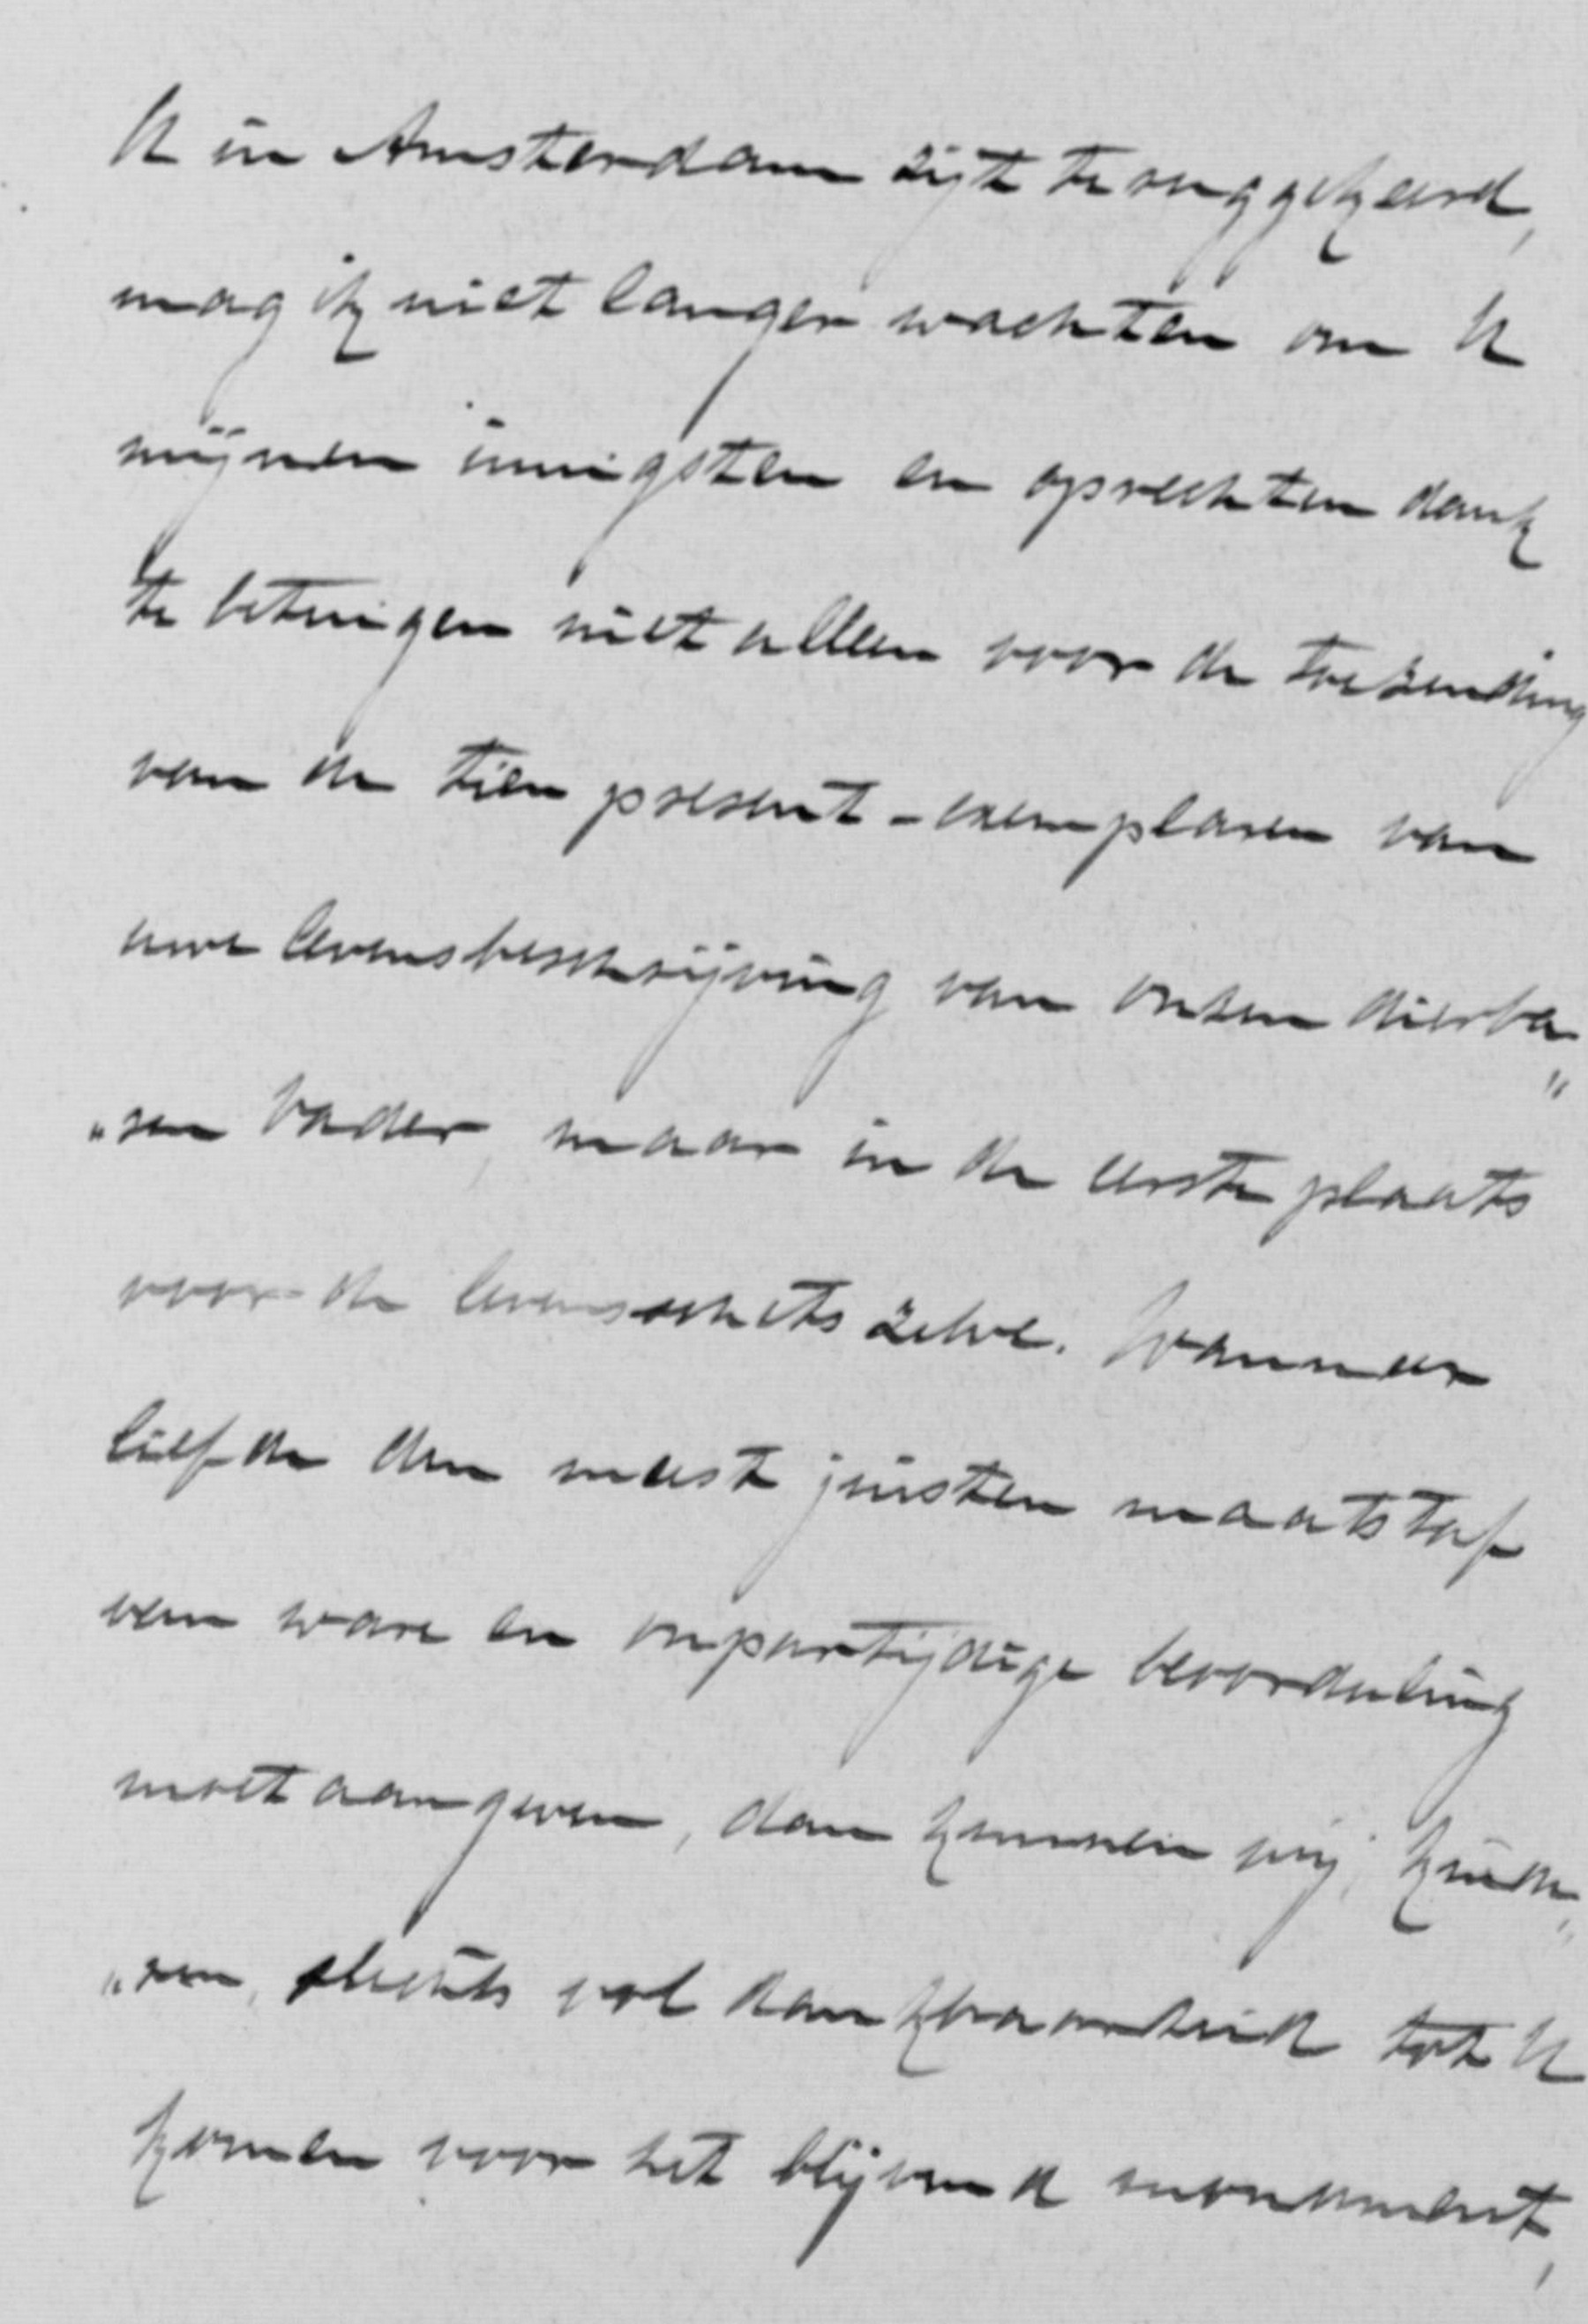 U in Amsterdam zijt teruggekeerd,
mag ik niet langer wachten om U
mijnen innigsten en oprechten dank
te betuigen niet alleen voor de toezending
van de tien present-exemplaren van
uwe levensbeschrijving van onzen dierba„
„ren Vader, maar in de eerste plaats
voor de levensschets zelve. Wanneer
liefde den meest juisten maatstaf
van ware en onpartijdige beoordeeling
moet aangeven, dan kunnen wij, kinde„
„ren, slechts vol dankbaarheid tot U
komen voor het blijvend monument,